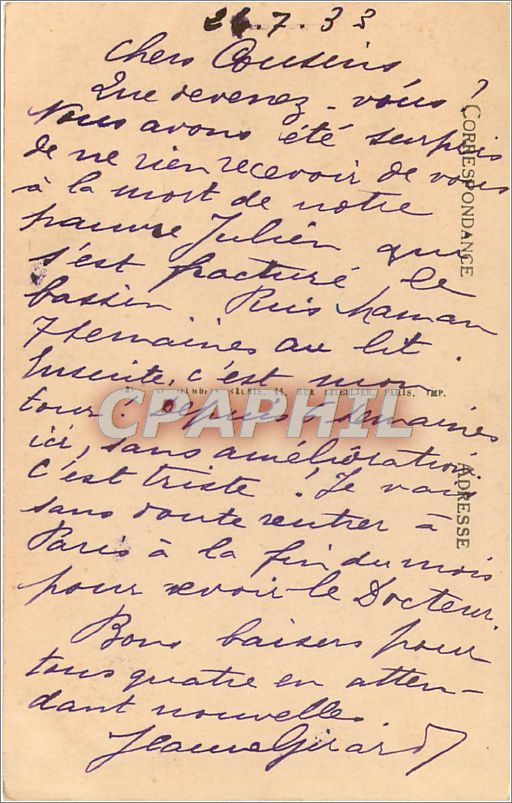 26.7.33
Chers Cousins,
Que devenez-vous?
Nous avons été surpris
de ne rien recevoir de vous
à la mort de notre
pauvre Julien qui
s'est fracturé le
bassin. Puis Maman
7 semaines au lit.
Ensuite, c'est mon
tour! depuis 6 semaines
ici, sans amélioration
c'est triste! Je vais
sans doute rentrer à
Paris à la fin du mois
pour revoir le Docteur.
Bons baisers pour
tous quatre en atten-
dant nouvelles
Jeanne Girard
CORRESPONDANCE
ADRESSE
RUE LETELLIER, PARIS. IMP.
CPAPHIL